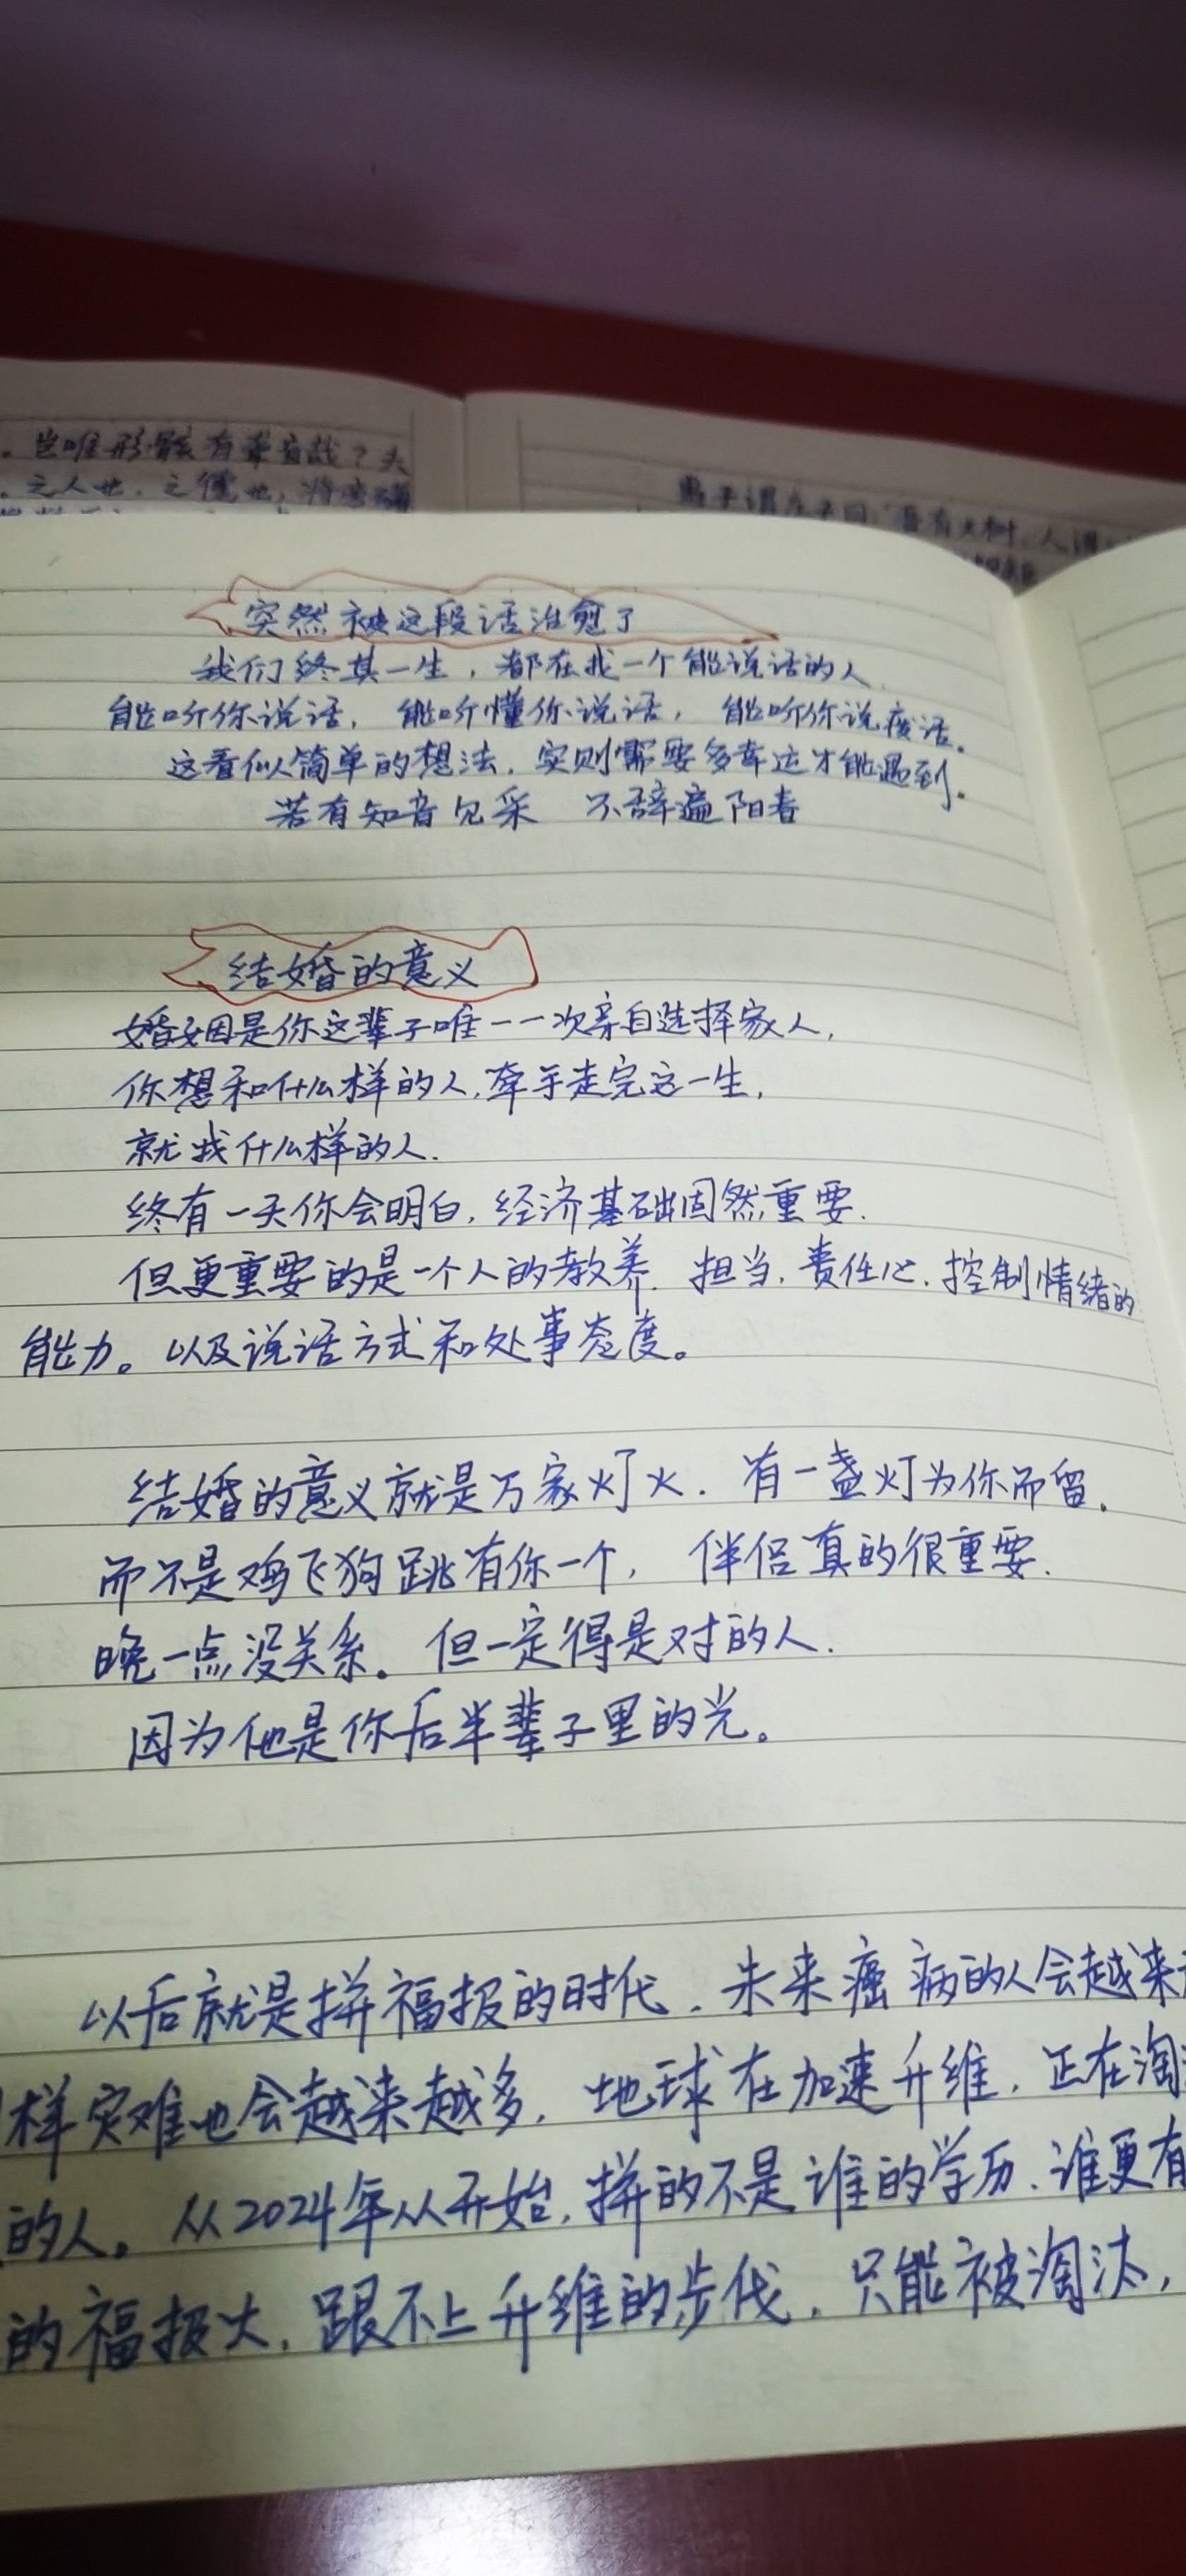 岂唯形骸有聋盲哉？夫
之人也，之德也，将磅礴
惠子谓庄子曰：吾有大树，人谓
突然被这段话治愈了
我们终其一生，都在找一个能说话的人
能听你说话，能听懂你说话，能听你说废话。
这看似简单的想法，实则需要多幸运才能遇到。
若有知音见采 不辞遍阳春
结婚的意义
婚姻是你这辈子唯一一次亲自选择家人，
你想和什么样的人，牵手走完这一生，
就找什么样的人.
终有一天你会明白，经济基础固然重要.
但更重要的是一个人的教养.担当.责任心.控制情绪的
能力。以及说话方式和处事态度。
结婚的意义就是万家灯火.有一盏灯为你而留.
而不是鸡飞狗跳有你一个，伴侣真的很重要.
晚一点没关系。但一定得是对的人.
因为他是你后半辈子里的光。
以后就是拼福报的时代.未来癌病的人会越来
样灾难也会越来越多，地球在加速升维，正在淘
的人。从2024年从开始，拼的不是谁的学历.谁更有
的福报大，跟不上升维的步伐，只能被淘汰，